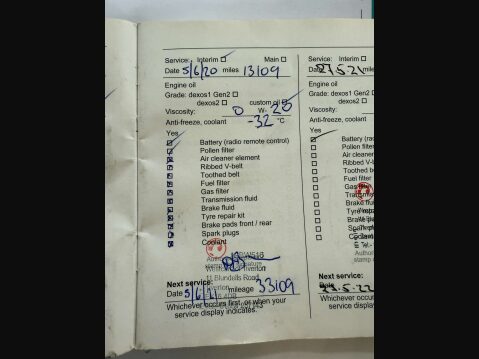 Service: Interim Main
Date 5/6/20 miles 13109
Engine oil
Grade: dexos1 Gen2
dexos2 custom oil
Viscosity: 0 W- 20
Anti-freeze, coolant -32 °C
Yes
Battery (radio remote control)
Pollen filter
Air cleaner element
Ribbed V-belt
Toothed belt
Fuel filter
Gas filter
Transmission fluid
Brake fluid
Tyre repair kit
Brake pads front / rear
Spark plugs
Coolant
Tiverton
11 Blundells Road
Tiverton
Next service:
Date 5/6/21 mileage 33109
Whichever occurs first, or when your
service display indicates.
Service: Interim
Date 27.5.21 mile
Engine oil
Grade: dexos1 Gen2
dexos2
Viscosity:
Anti-freeze, coolant
Yes
Battery (ra
Pollen filter
Air cleaner
Ribbed V-
Toothed b
Fuel filter
Gas filter
Brake flu
Next service:
Date 5.22
Whichever occur
service displ